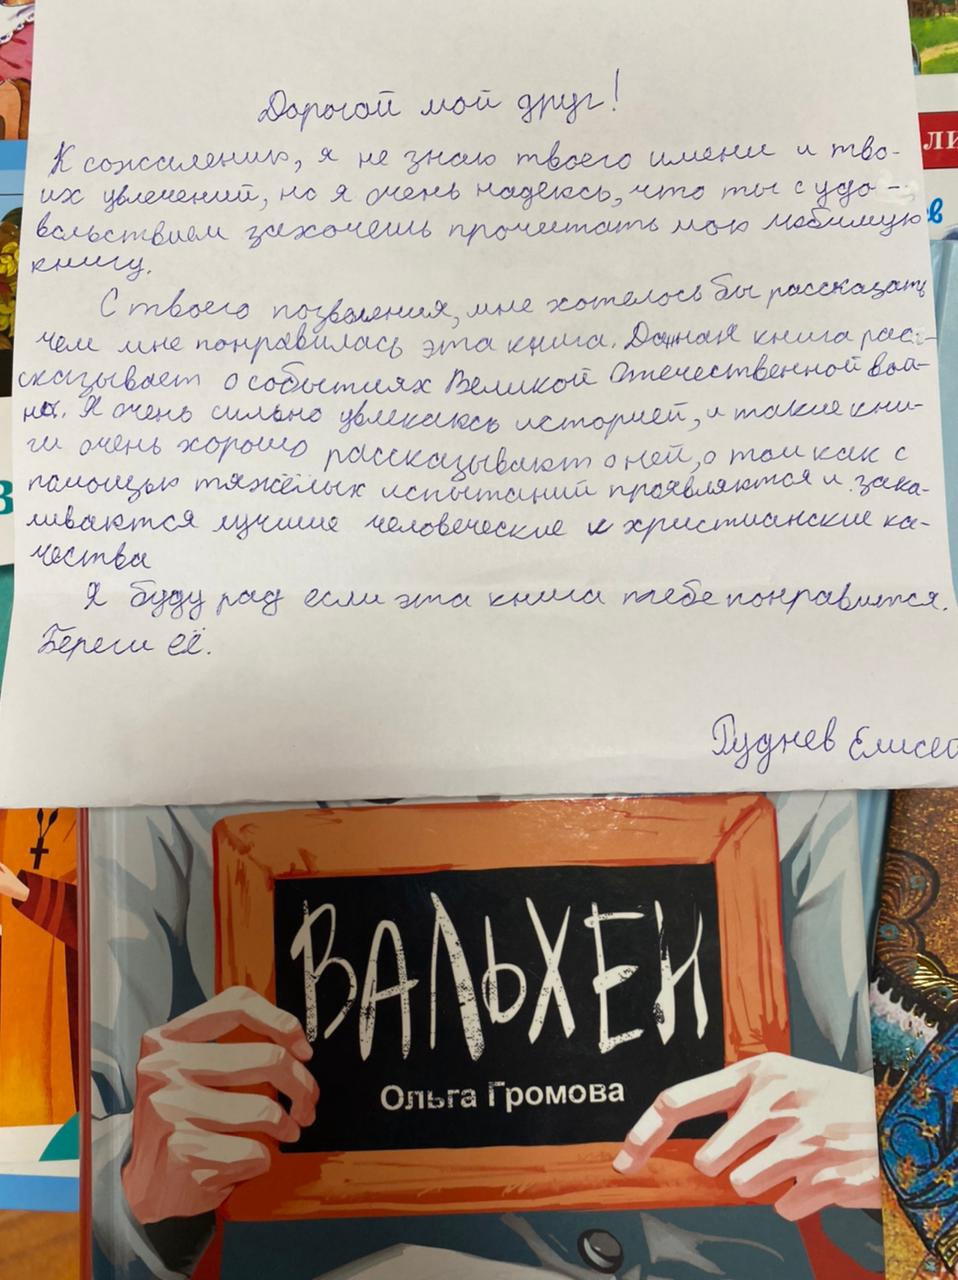 Дорогой мой друг!
К сожалению, я не знаю твоего имени и тво-
их увлечений, но я очень надеюсь, что ты с удо-
вольствием захочешь прочитать мою любимую
книгу.
С твоего позволения, мне хотелось бы рассказать
чем мне понравилась эта книга. Данная книга рас-
сказывает о событиях Великой Отечественной вой-
ны. Я очень сильно увлекаюсь историей, и такие кни-
ги очень хорошо рассказывают о ней, о том как с
помощью тяжёлых испытаний проявляются и зака-
ливаются лучшие человеческие и христианские ка-
чества
Я буду рад если эта книга тебе понравится.
Береги её.
Гуднев Елисе
ВАЛЬХЕН
Ольга Громова
ЛИ
в
В